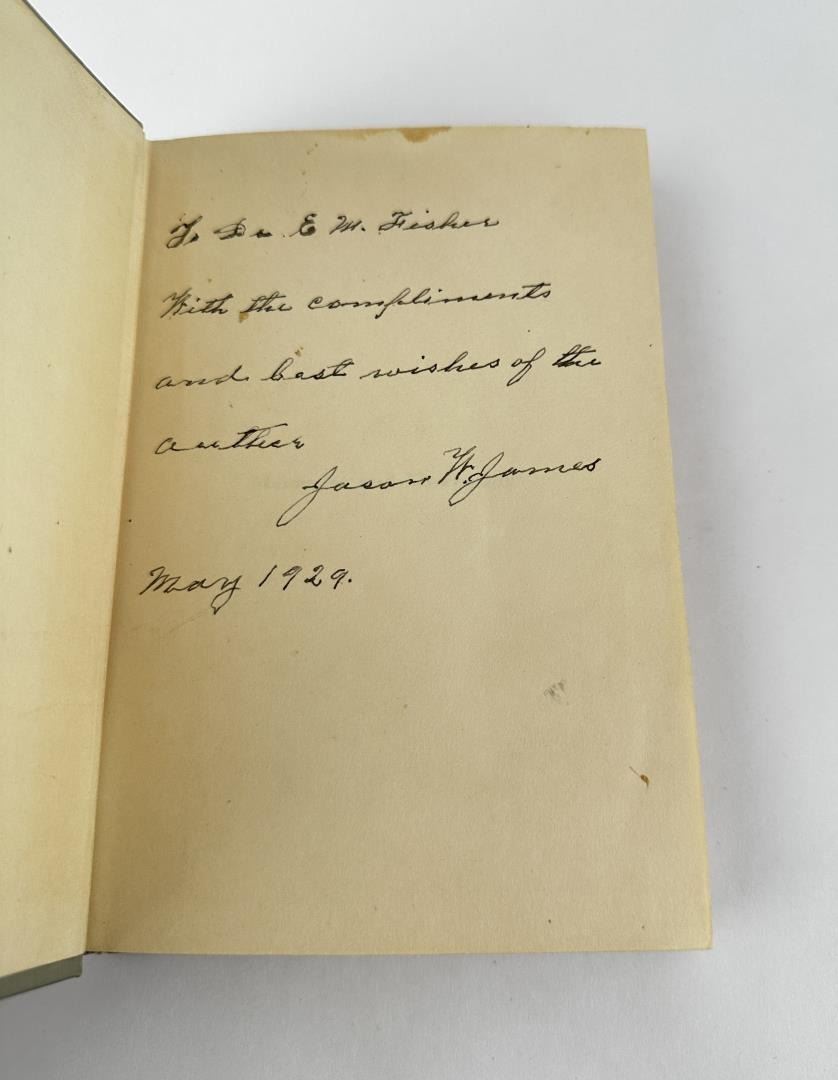 To Dr E M. Fisher
With the compliments
and best wishes of the
author
Jason W. James
May 1929.